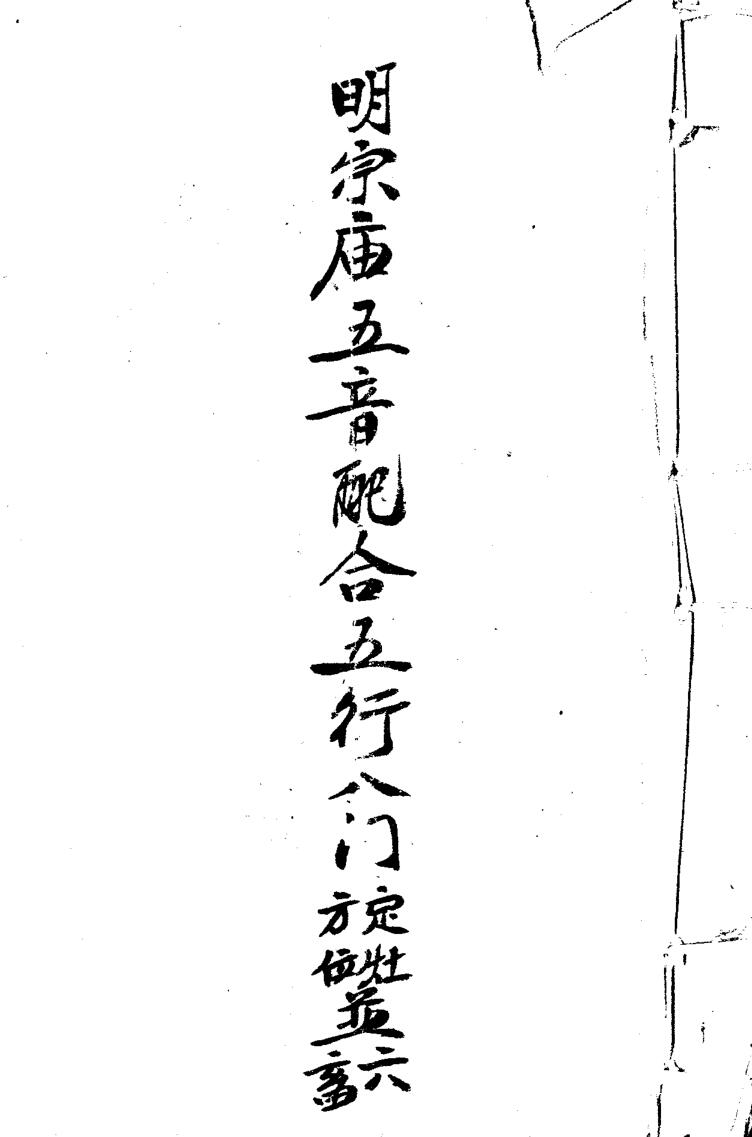 明宗庙五音配合五行八门
定灶
方位
並
六
畜